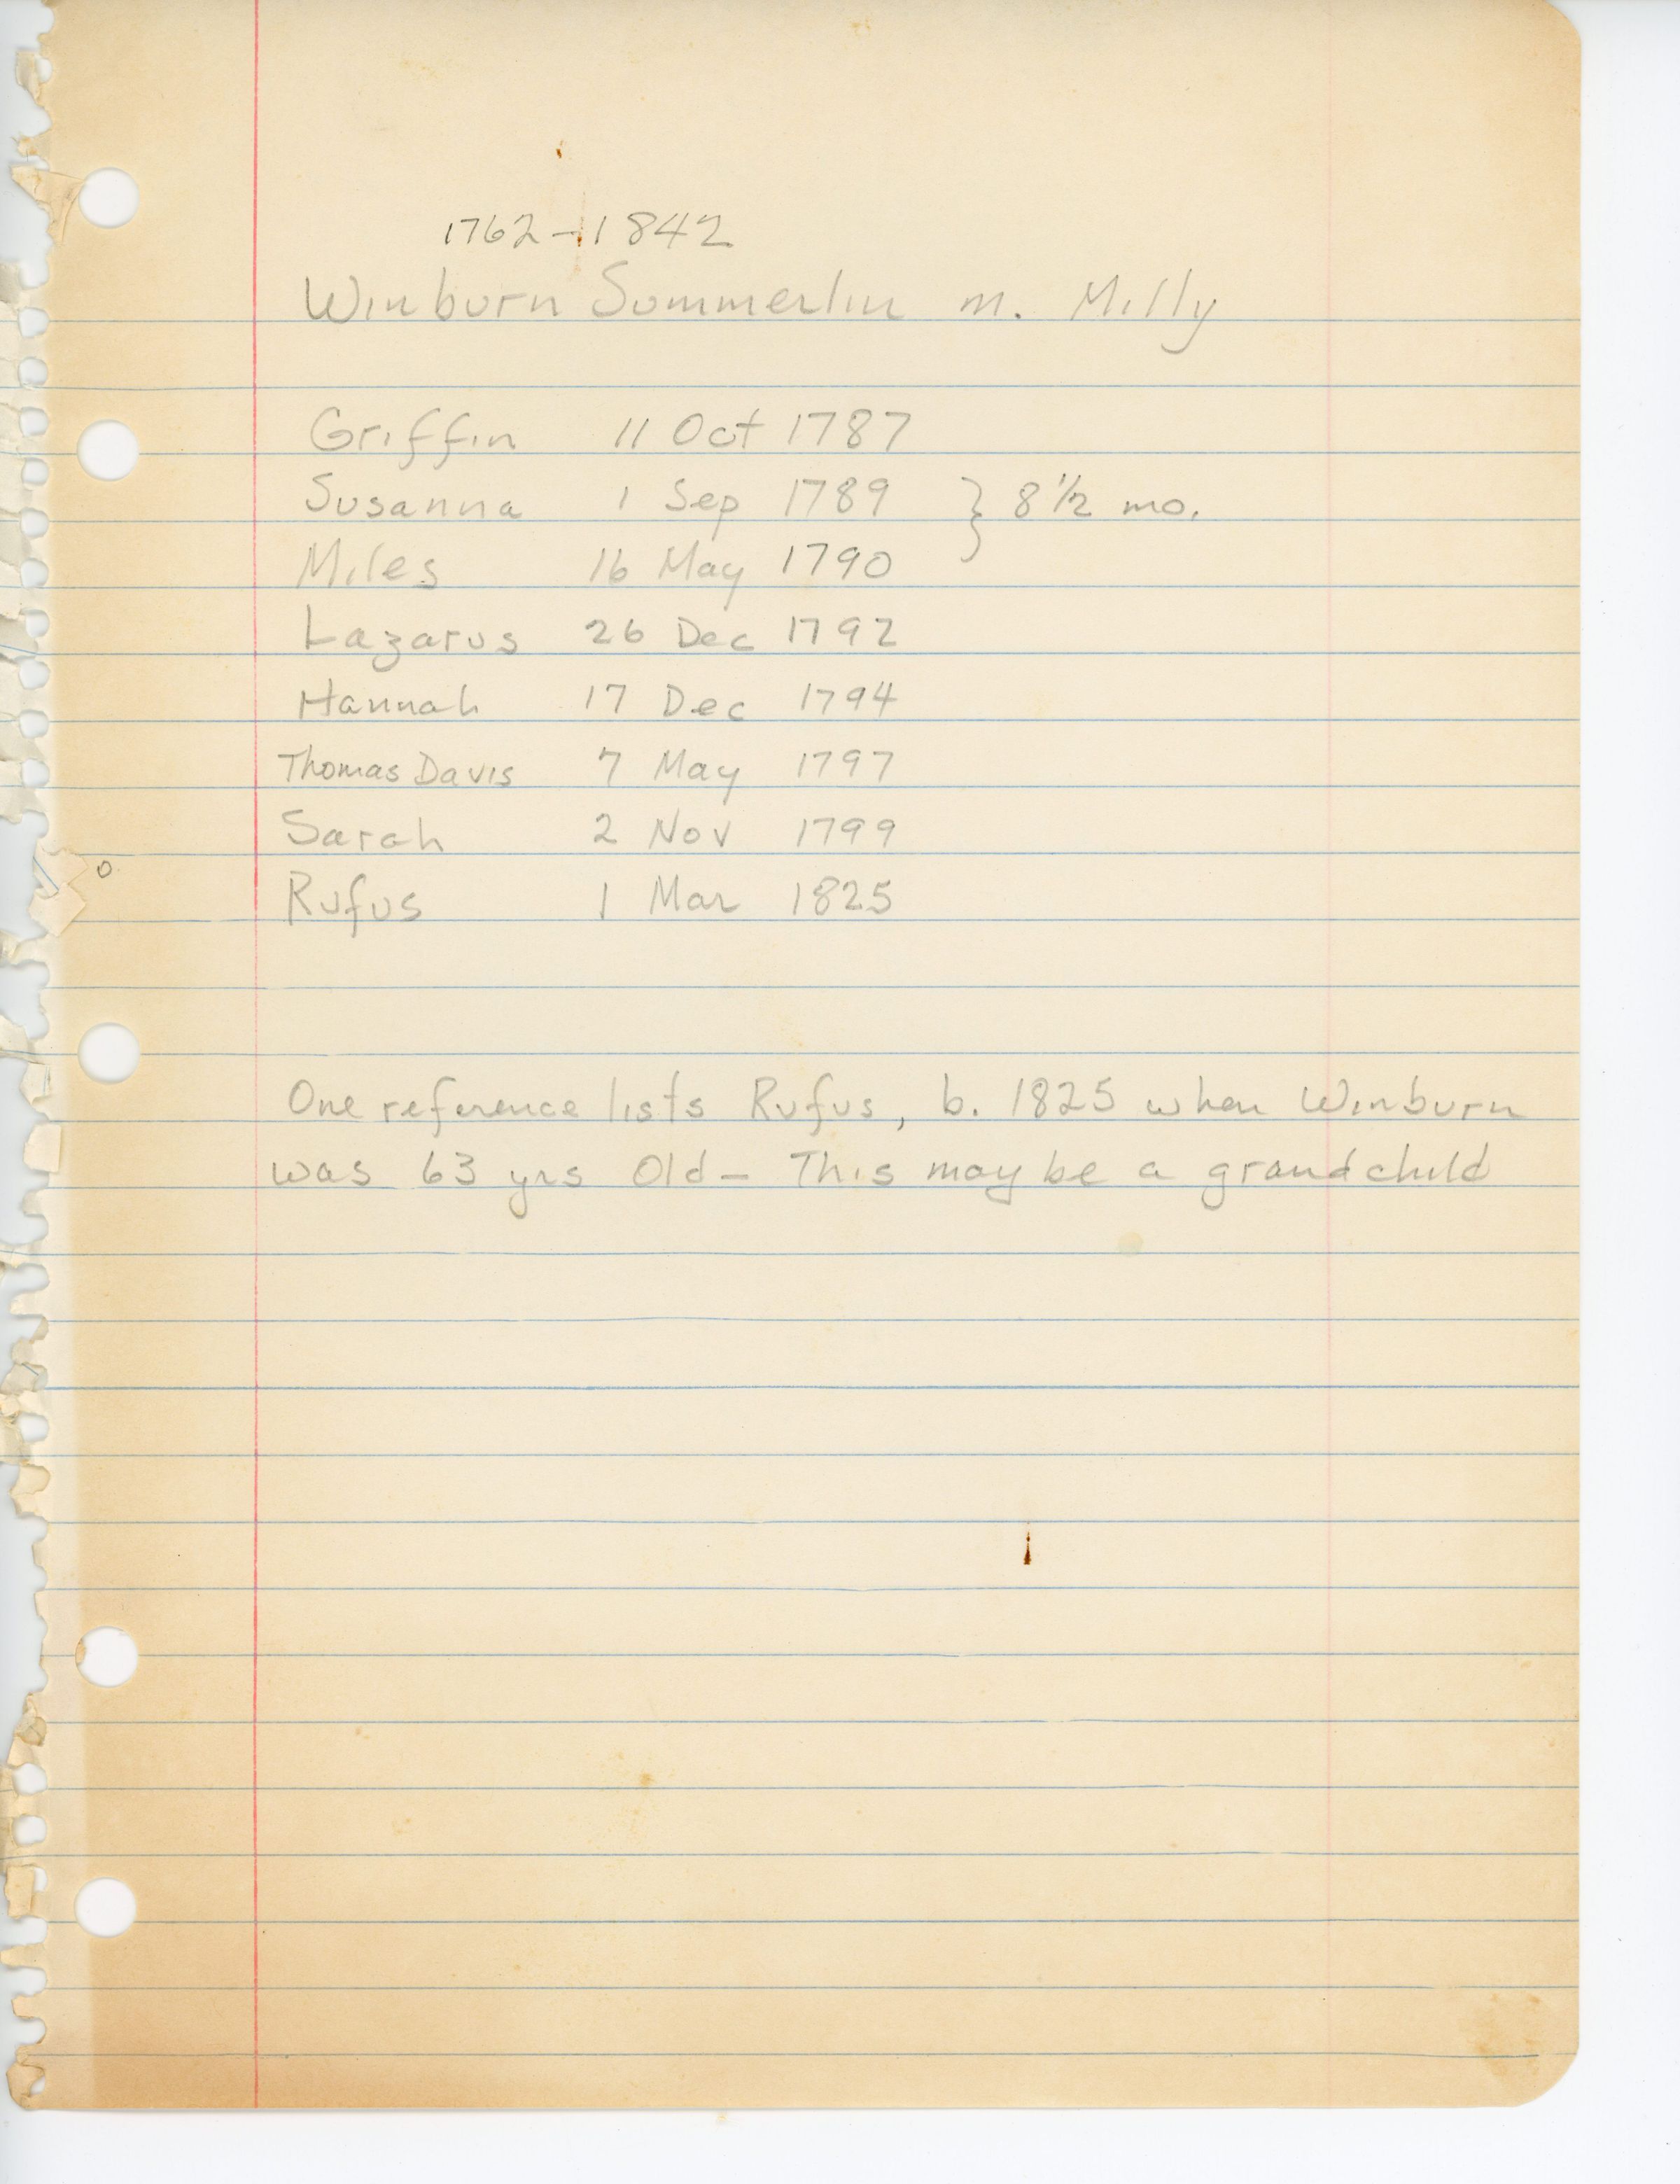 1762-1842
Winburn Summerlin m. Milly
Griffin 11 Oct 1787
Susanna 1 Sep 1789 } 8 1/2 mo.
Miles 16 May 1790
Lazarus 26 Dec 1792
Hannah 17 Dec 1794
Thomas Davis 7 May 1797
Sarah 2 Nov 1799
Rufus 1 Mar 1825
One reference lists Rufus, b. 1825 when Winburn
was 63 yrs Old - This may be a grandchild